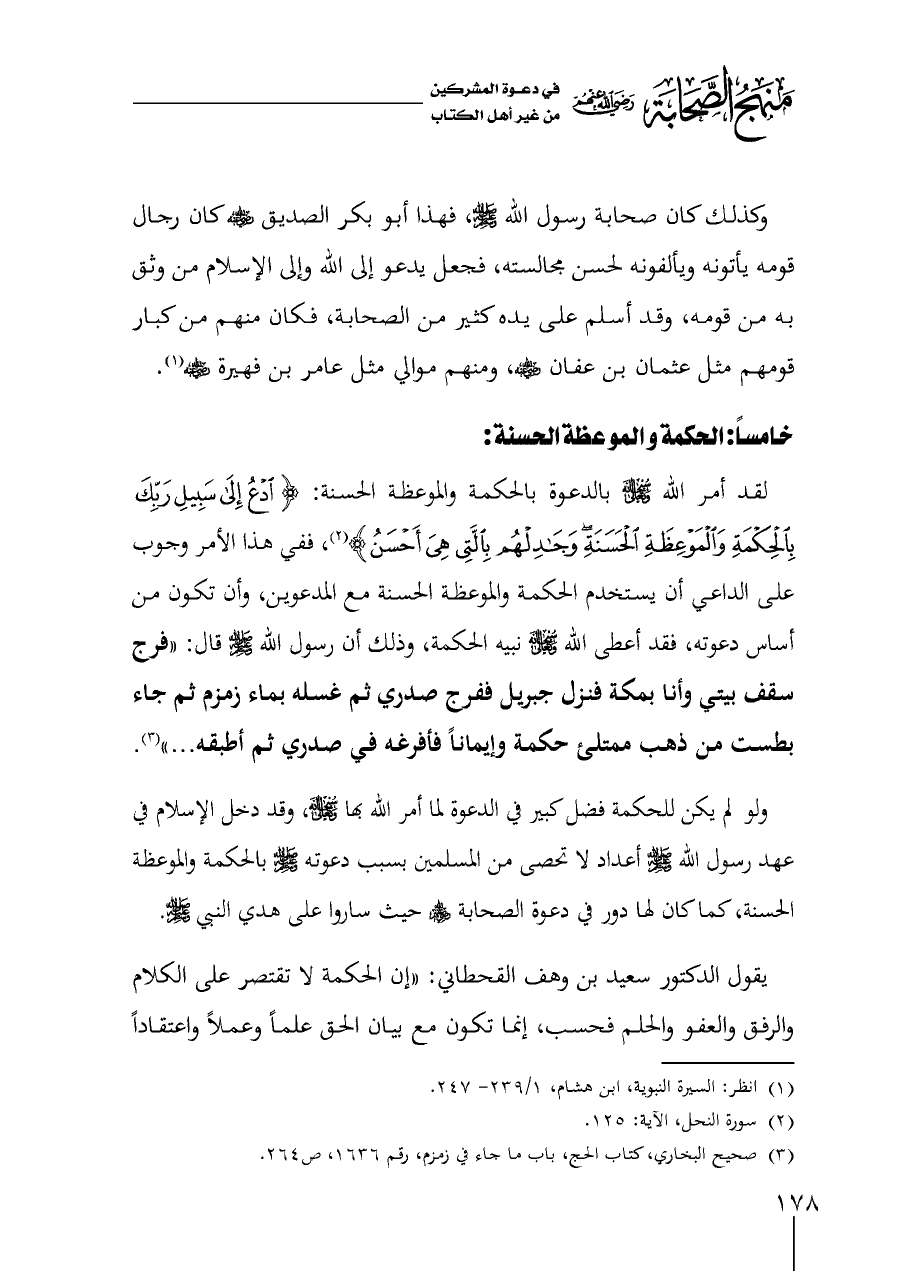 منهج الصحابة رضي الله عنهم في دعوة المشركين
من غير أهل الكتاب
وكذلك كان صحابة رسول الله ﷺ، فهذا أبو بكر الصديق رضي الله عنه كان رجال
قومه يأتونه ويألفونه لحسن مجالسته، فجعل يدعو إلى الله وإلى الإسلام من وثق
به من قومه، وقد أسلم على يده كثير من الصحابة، فكان منهم من كبار
قومهم مثل عثمان بن عفان رضي الله عنه، ومنهم موالي مثل عامر بن فهيرة رضي الله عنه(١).
خامساً: الحكمة والموعظة الحسنة:
لقد أمر الله ﷻ بالدعوة بالحكمة والموعظة الحسنة: ﴿ ٱدْعُ إِلَىٰ سَبِيلِ رَبِّكَ
بِٱلْحِكْمَةِ وَٱلْمَوْعِظَةِ ٱلْحَسَنَةِ ۖ وَجَٰدِلْهُم بِٱلَّتِى هِىَ أَحْسَنُ ﴾(٢)، ففي هذا الأمر وجوب
على الداعي أن يستخدم الحكمة والموعظة الحسنة مع المدعوين، وأن تكون من
أساس دعوته، فقد أعطى الله ﷻ نبيه الحكمة، وذلك أن رسول الله ﷺ قال: «فرج
سقف بيتي وأنا بمكة فنزل جبريل ففرج صدري ثم غسله بماء زمزم ثم جاء
بطست من ذهب ممتلئ حكمة وإيماناً فأفرغه في صدري ثم أطبقه...»(٣).
ولو لم يكن للحكمة فضل كبير في الدعوة لما أمر الله بها ﷻ، وقد دخل الإسلام في
عهد رسول الله ﷺ أعداد لا تحصى من المسلمين بسبب دعوته ﷺ بالحكمة والموعظة
الحسنة، كما كان لها دور في دعوة الصحابة رضي الله عنهم حيث ساروا على هدي النبي ﷺ.
يقول الدكتور سعيد بن وهف القحطاني: «إن الحكمة لا تقتصر على الكلام
والرفق والعفو والحلم فحسب، إنما تكون مع بيان الحق علماً وعملاً واعتقاداً
(١) انظر: السيرة النبوية، ابن هشام، ٢٣٩/١- ٢٤٧.
(٢) سورة النحل، الآية: ١٢٥.
(٣) صحيح البخاري، كتاب الحج، باب ما جاء في زمزم، رقم ١٦٣٦، ص٢٦٤.
١٧٨